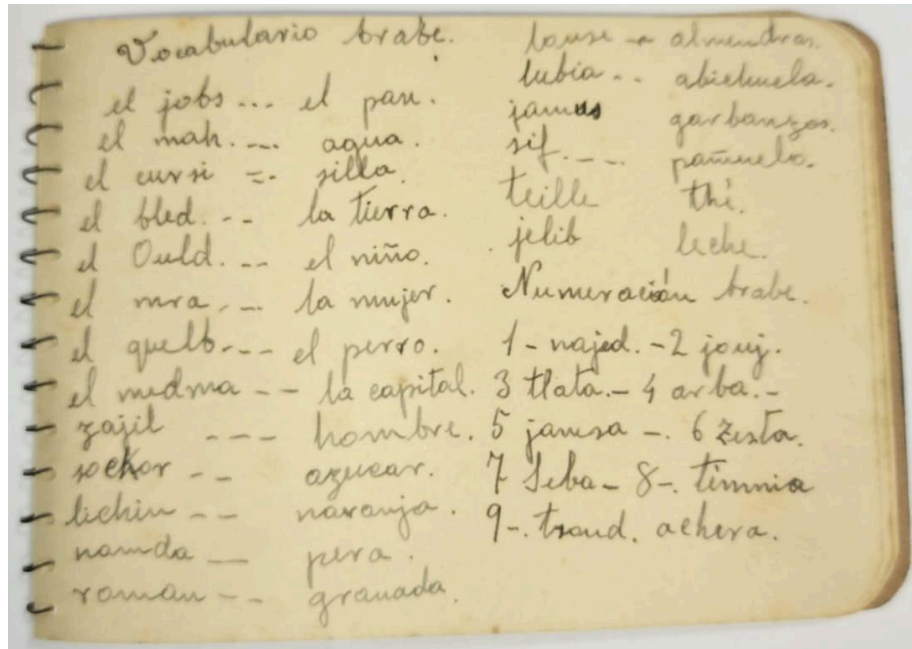 Vocabulario Arabe.
el jobs ... el pan.
el mah. ... agua.
el cursi =. silla.
el bled. .. la tierra.
el Ould. .. el niño.
el mra, ... la mujer.
el quelb. .. el perro.
el medma -- la capital.
zajil --- hombre.
sockor -- azucar.
lichin -- naranja.
namda -- pera.
roman -- granada.
louse - almendras.
lubia .. abichuela.
jamus garbanzos.
sif. ... pañuelo.
teille thé.
jelib leche.
Numeración Arabe.
1 - najed. - 2 jouj.
3 tlata. - 4 arba. -
5 jamsa -. 6 zesta.
7 Seba - 8 -. timnia
9 -. tsaud. achera.